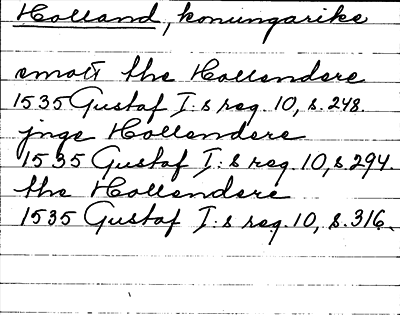 Holland, konungarike
emott the Hollendere
1535 Gustaf I:s reg. 10, s. 248.
jnge Hollendere
1535 Gustaf I:s reg. 10, s. 294.
the Hollendere
1535 Gustaf I:s reg. 10, s. 316.